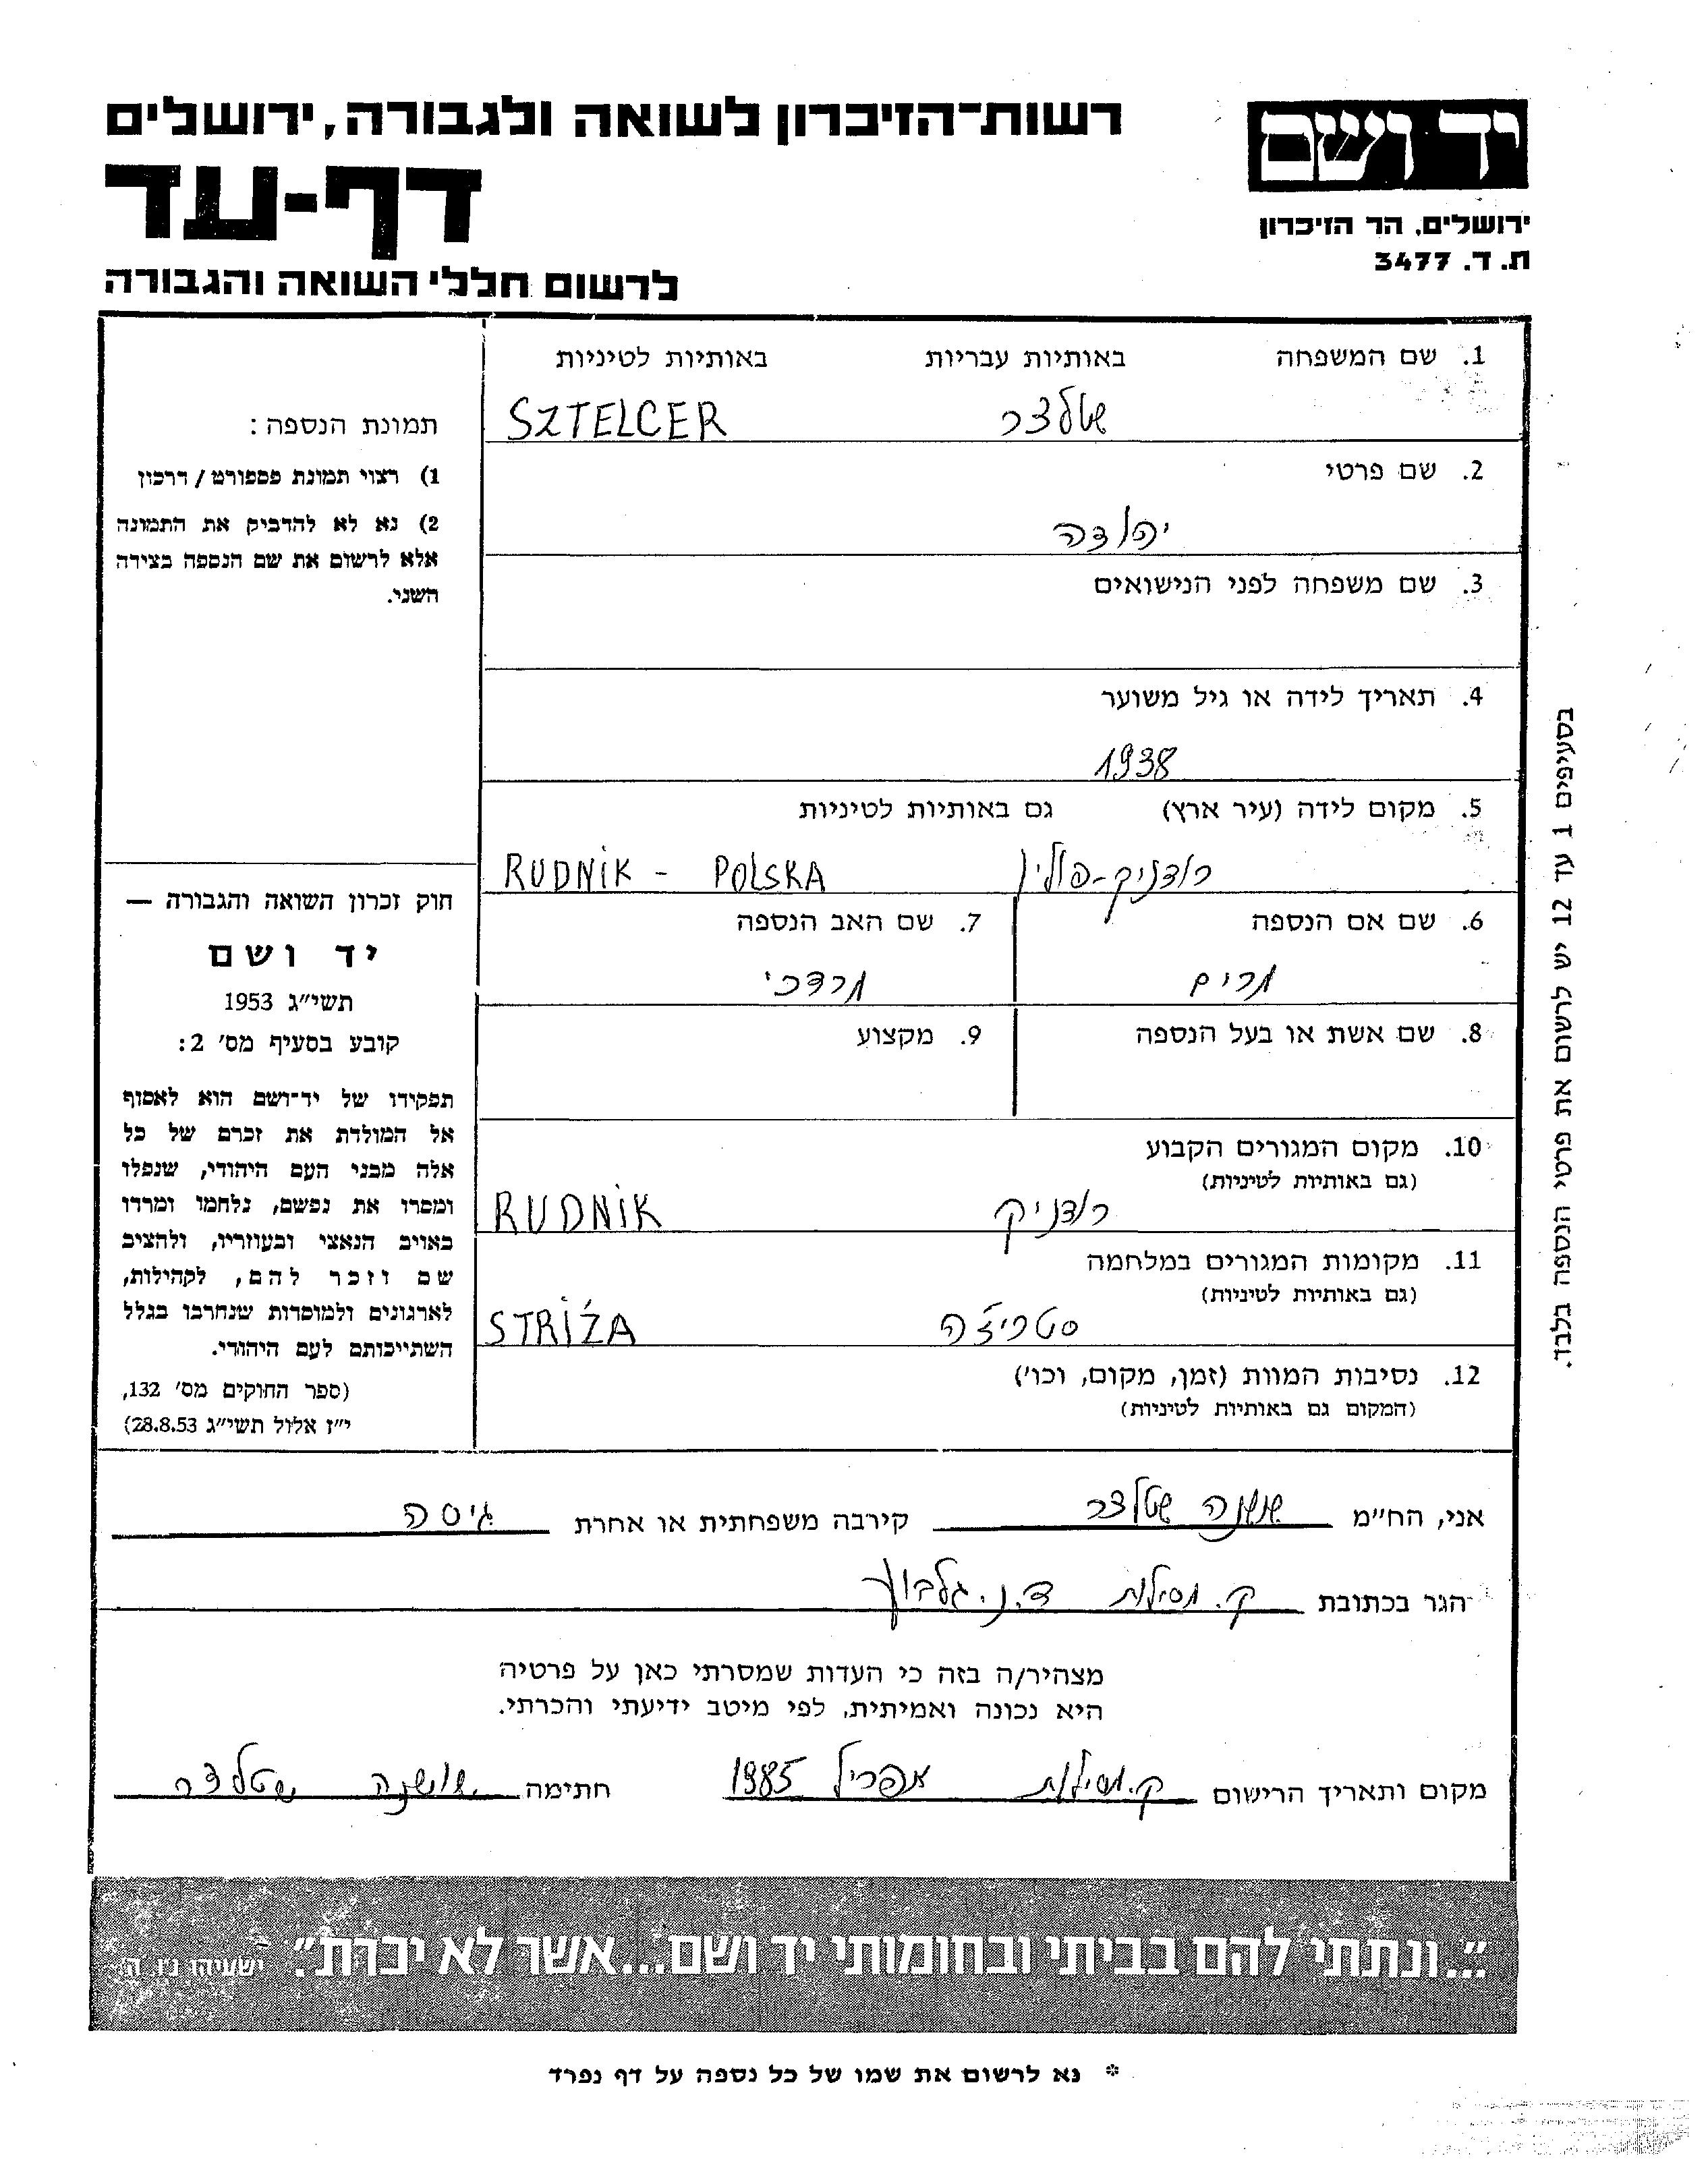 רשות־הזיכרון לשואה ולגבורה, ירושלים
דף-עד
לרשום חללי השואה והגבורה
יד ושם
ירושלים, הר הזיכרון
ת. ד. 3477
1. שם המשפחה באותיות עבריות באותיות לטיניות
שטלצר SZTELCER
2. שם פרטי
יהודה
3. שם משפחה לפני הנישואים
4. תאריך לידה או גיל משוער
1938
5. מקום לידה (עיר ארץ) גם באותיות לטיניות
רודניק-פולין RUDNIK - POLSKA
6. שם אם הנספה 7. שם האב הנספה
מרים מרדכי
8. שם אשת או בעל הנספה 9. מקצוע
10. מקום המגורים הקבוע
(גם באותיות לטיניות)
רודניק RUDNIK
11. מקומות המגורים במלחמה
(גם באותיות לטיניות)
סטריז'ה STRIŻA
12. נסיבות המוות (זמן, מקום, וכו')
(המקום גם באותיות לטיניות)
תמונת הנספה:
1) רצוי תמונת פספורט / דרכון
2) נא לא להדביק את התמונה
אלא לרשום את שם הנספה בצידה
השני.
חוק זכרון השואה והגבורה —
יד ושם
תשי״ג 1953
קובע בסעיף מס' 2:
תפקידו של יד־ושם הוא לאסוף
אל המולדת את זכרם של כל
אלה מבני העם היהודי, שנפלו
ומסרו את נפשם, נלחמו ומרדו
באויב הנאצי ובעוזריו, ולהציב
שם וזכר להם, לקהילות,
לארגונים ולמוסדות שנחרבו בגלל
השתייכותם לעם היהודי.
(ספר החוקים מס' 132,
י״ז אלול תשי״ג 28.8.53)
בסעיפים 1 עד 12 יש לרשום את פרטי הנספה בלבד.
אני, הח״מ שושנה שטלצר קירבה משפחתית או אחרת גיסה
הגר בכתובת ק. מסילות ד.נ. גלבוע
מצהיר/ה בזה כי העדות שמסרתי כאן על פרטיה
היא נכונה ואמיתית, לפי מיטב ידיעתי והכרתי.
מקום ותאריך הרישום ק. מסילות אפריל 1985 חתימה שושנה שטלצר
"...ונתתי להם בביתי ובחומותי יד ושם...אשר לא יכרת". ישעיהו נ״ו, ה
* נא לרשום את שמו של כל נספה על דף נפרד